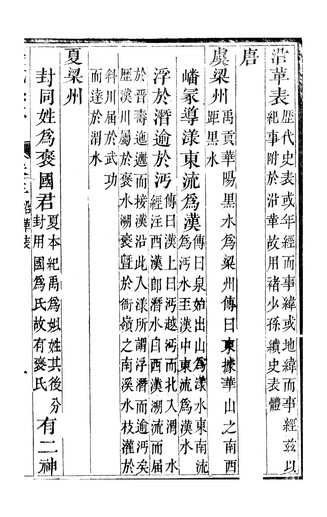 沿革表
歷代史表或年經而事緯或地緯而事經茲以
紀事附於沿革故用褚少孫續史表體
唐
虞梁州
禹貢華陽黑水爲梁州傳曰東據華山之南西
距黑水
嶓冢導漾東流爲漢
傳曰泉始出山爲漾水東南流
爲沔水至漢中東流爲漢水
浮於潛逾於沔
傳曰漢上曰沔越沔而北入渭水
經注西漢卽潛水自西漢溯流而屆
於晉壽迤邐而接漢沿此入漾所謂浮潛而逾沔矣
歷漢川屬於褒水溯褒曁於衙嶺之南溪水枝灌於
斜川屆於武功
而達於渭水
夏梁州
封同姓爲褒國君
夏本紀禹爲姒姓其後分
封用國爲氏故有褒氏
有二神